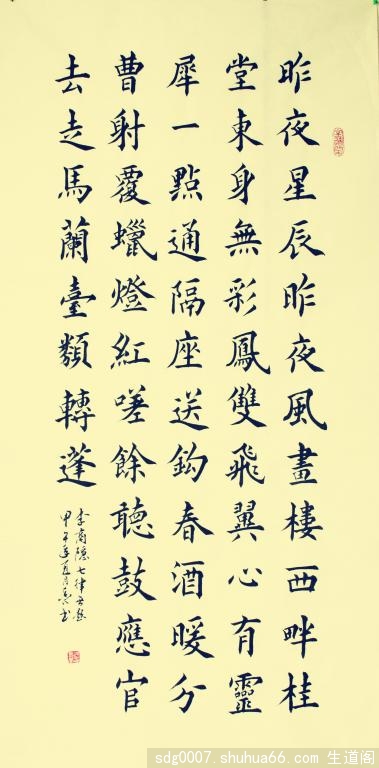 昨夜星辰昨夜風畫樓西畔桂
堂東身無彩鳳雙飛翼心有靈
犀一點通隔座送鈎春酒暖分
曹射覆蠟燈紅嗟餘聽鼓應官
去走馬蘭臺類轉蓬
李商隐七律无题
甲午年夏月 书
sdg0007.shuhua66.com 生道阁